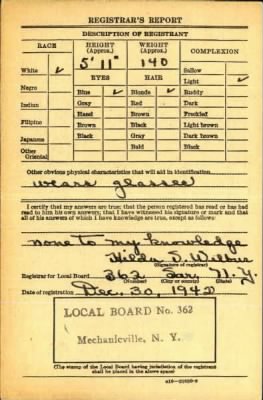 REGISTRAR'S REPORT
DESCRIPTION OF REGISTRANT
RACE HEIGHT (Approx.) WEIGHT (Approx.) COMPLEXION
5' 11" 140
White ✓ Sallow
EYES HAIR Light ✓
Negro Blue ✓ Blonde ✓ Ruddy
Indian Gray Red Dark
Hazel Brown Freckled
Filipino Brown Black Light brown
Japanese Black Gray Dark brown
Other Oriental Bald Black
Other obvious physical characteristics that will aid in identification
wears glasses
I certify that my answers are true; that the person registered has read or has had
read to him his own answers; that I have witnessed his signature or mark and that
all of his answers of which I have knowledge are true, except as follows:
none to my knowledge
Hilda D. Wilbur
(Signature of registrar)
Registrar for Local Board 362 Sar. N.Y.
(Number) (City or county) (State)
Date of registration Dec. 30, 1942
LOCAL BOARD No. 362
Mechanicville, N. Y.
(The stamp of the Local Board having jurisdiction of the registrant
shall be placed in the above space)